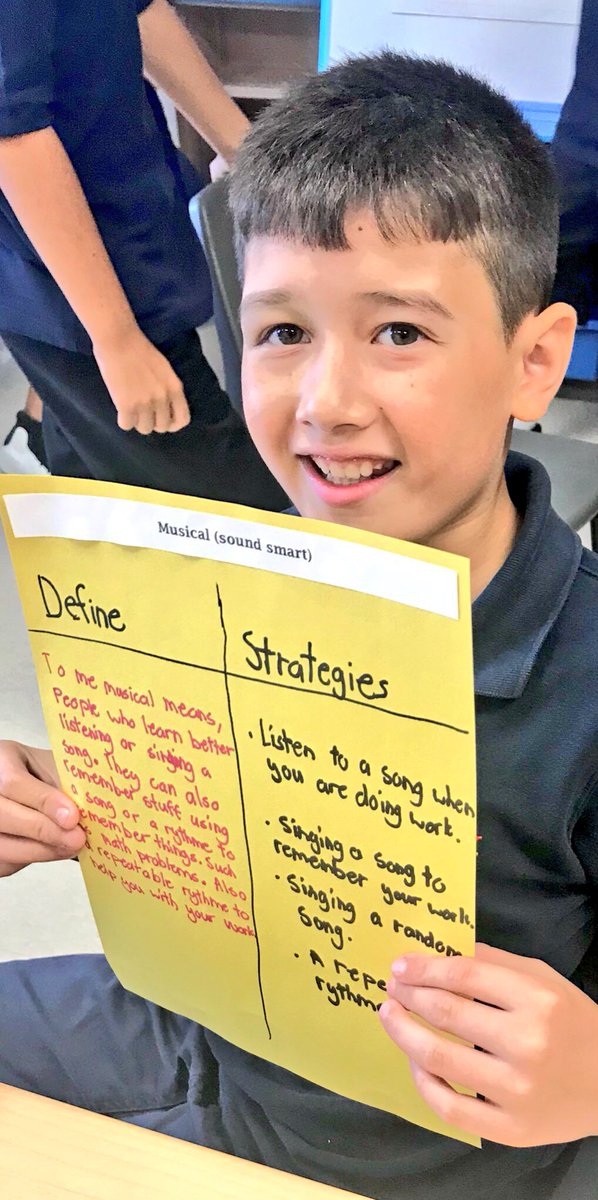 Musical (sound smart)
Define
To me musical means,
People who learn better
listening or singing a
song. They can also
remember stuff using
a song or a rythme to
remember things. Such
math problems. Also
repeatable rythme to
help you with your work
Strategies
· Listen to a song when
you are doing work.
· Singing a song to
remember your work.
· Singing a random
song.
· A repe
rythme